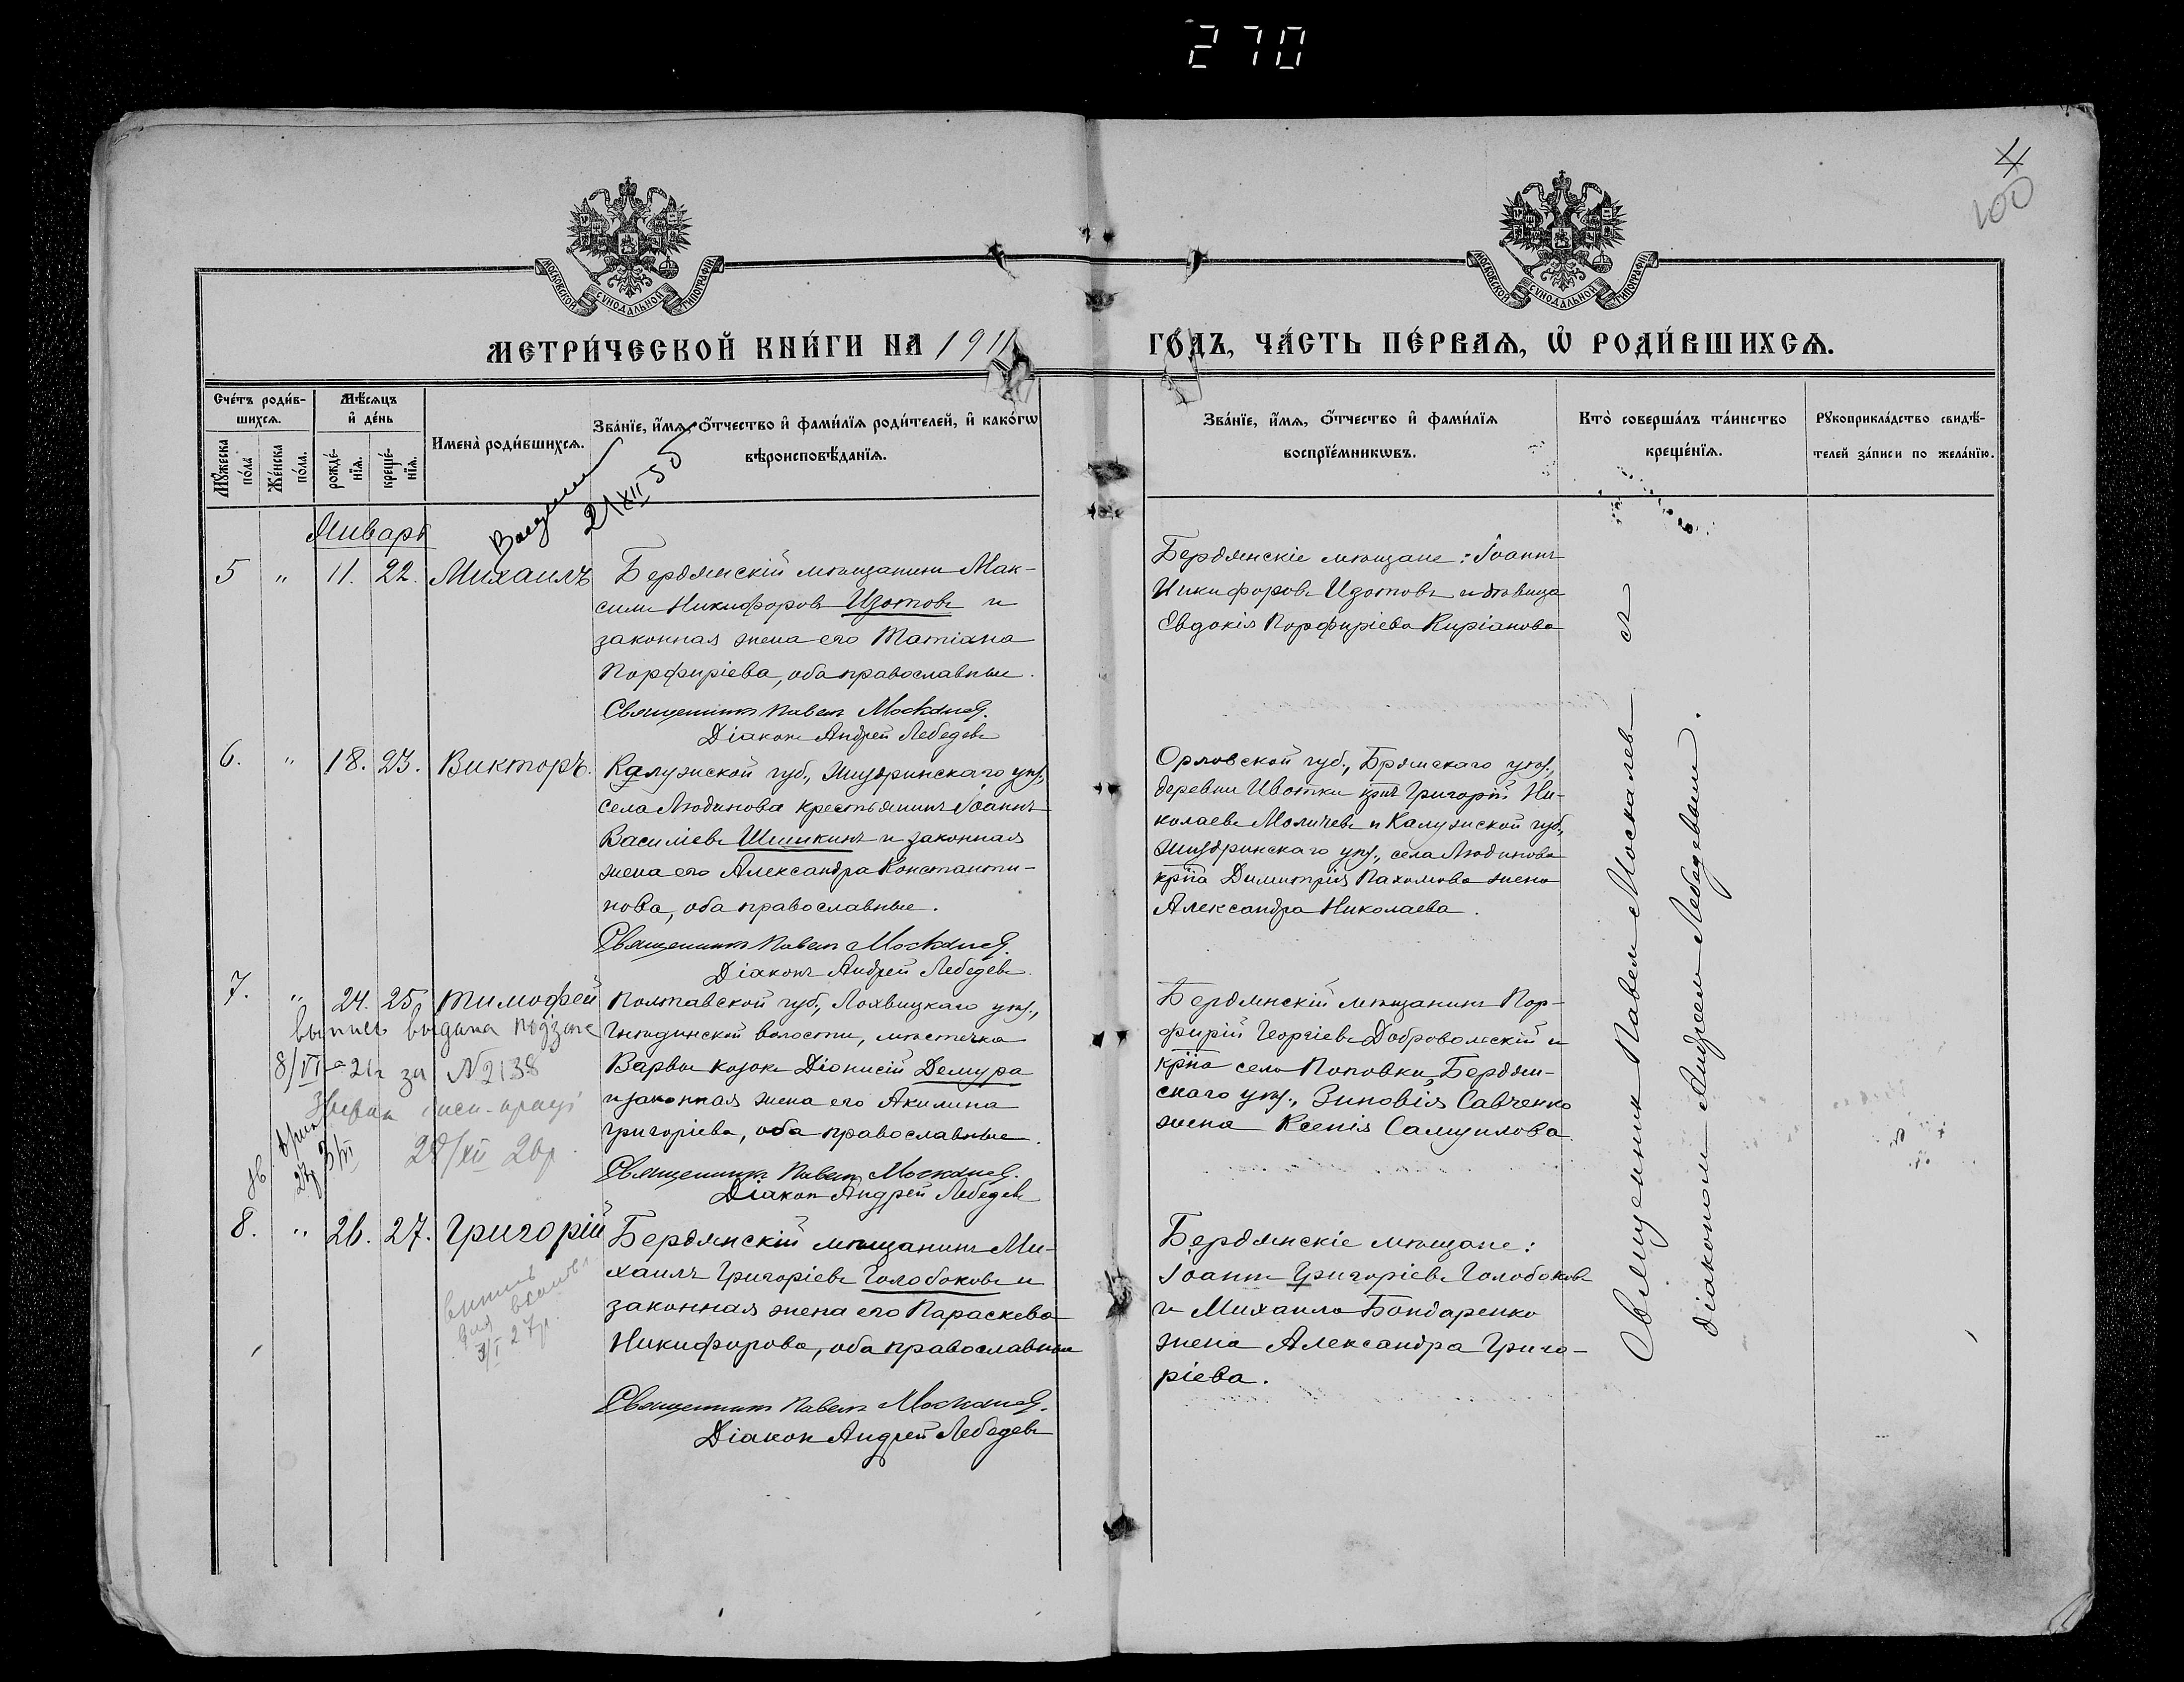 270
4
100
МОСКОВСКОЙ СѴНОДАЛЬНОЙ ТИПОГРАФІИ
МОСКОВСКОЙ СѴНОДАЛЬНОЙ ТИПОГРАФІИ
МЕТРИ́ЧЕСКОЙ КНИ́ГИ НА 1911
ГО́ДЪ, ЧА́СТЬ ПЕ́РВАѦ, Ѡ҆ РОДИ́ВШИХСѦ.
Сче́тъ роди́в-
шихсѧ.
Мꙋ́жеска по́ла
Же́нска по́ла.
Мѣ́сѧцъ
и҆ де́нь
рожде́-
нїѧ.
креще́-
нїѧ.
Имена̀ роди́вшихсѧ.
Зва́нїе, и҆́мѧ, ѻ҆́тчество и҆ фами́лїѧ роди́телей, и҆ како́гѡ
вѣроисповѣ́данїѧ.
Зва́нїе, и҆́мѧ, ѻ҆́тчество и҆ фами́лїѧ
воспрїе́мникѡвъ.
Кто̀ соверша́лъ та́инство
креще́нїѧ.
Рꙋкоприкла́дство свидѣ́-
телей за́писи по жела́нїю.
Январь
21 XII 55
5 " 11. 22. Михаилъ
Бердянскій мѣщанинъ Мак-
симъ Никифоровъ Изотовъ и
законная жена его Татіана
Порфиріева, оба православные.
Священникъ Павелъ Москалев.
Діаконъ Андрей Лебедевъ
Бердянскіе мѣщане: Іоаннъ
Никифоровъ Изотовъ и дѣвица
Евдокія Порфиріева Киріанова
6. " 18. 23. Викторъ.
Калужской губ., Жиздринскаго уѣз.,
села Людинова крестьянинъ Іоаннъ
Василіевъ Шишкинъ и законная
жена его Александра Константи-
нова, оба православные.
Священникъ Павелъ Москалев.
Діаконъ Андрей Лебедевъ.
Орловской губ., Брянскаго уѣз.,
деревни Ивотки крнъ Григорій Ни-
колаевъ Моличевъ и Калужской губ.,
Жиздринскаго уѣз., села Людинова
крна Димитрія Пахомова жена
Александра Николаева.
7. " 24. 25. Тимофей
выпись выдана
8/VI 21г за № 2138
28/XII 26р.
Полтавской губ., Лохвицкаго уѣз.,
волости, мѣстечка
Варвы козакъ Діонисій Демура
и законная жена его Акилина
Григоріева, оба православные.
Священникъ Павелъ Москалев.
Діакон Андрей Лебедевъ
Бердянскій мѣщанинъ Пор-
фирій Георгіевъ Доброволскій и
крна села Поповки, Бердян-
скаго уѣз., Зиновія Савченко
жена Ксенія Самуилова.
8. " 26. 27. Григорій
3/I 27р.
Бердянскій мѣщанинъ Ми-
хаилъ Григоріевъ Голобоковъ и
законная жена его Параскева
Никифорова, оба православные
Священникъ Павелъ Москалев.
Діакон Андрей Лебедевъ
Бердянскіе мѣщане:
Іоаннъ Григоріевъ Голобоковъ
и Михаила Бондаренко
жена Александра Григо-
ріева.
Священник Павел Москалев с
діаконом Андреем Лебедевым.